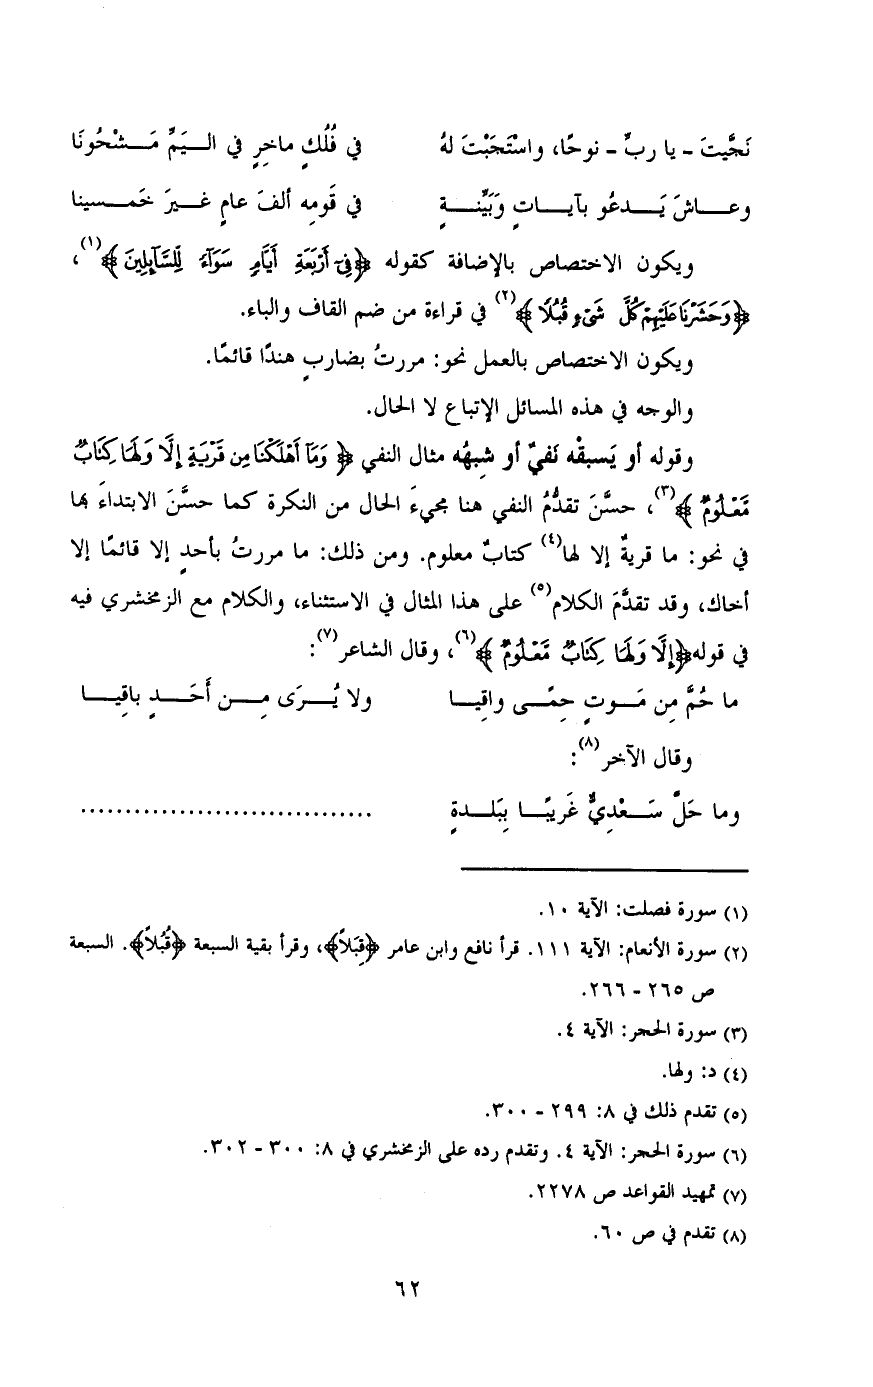 نَجَّيتَ - يا ربِّ - نوحًا، واسْتَجَبْتَ لهُ في فُلُكٍ ماخِرٍ في اليَمِّ مَشْحُونَا
وعاشَ يَدعُو بآياتٍ وَبَيِّنةٍ في قَومِه ألفَ عامٍ غيرَ خَمسينا
ويكون الاختصاص بالإضافة كقوله ﴿فِىٓ أَرْبَعَةِ أَيَّامٍ سَوَآءً لِّلسَّآئِلِينَ﴾(١)،
﴿وَحَشَرْنَا عَلَيْهِمْ كُلَّ شَىْءٍ قُبُلًا﴾(٢) في قراءة من ضم القاف والباء.
ويكون الاختصاص بالعمل نحو: مررتُ بضاربٍ هندًا قائمًا.
والوجه في هذه المسائل الإتباع لا الحال.
وقوله أو يَسبقْه نَفيٌ أو شبهُه مثال النفي ﴿وَمَآ أَهْلَكْنَا مِن قَرْيَةٍ إِلَّا وَلَهَا كِتَابٌ
مَّعْلُومٌ﴾(٣)، حسَّنَ تقدُّمُ النفي هنا مجيءَ الحال من النكرة كما حسَّنَ الابتداءَ بها
في نحو: ما قريةٌ إلا لها(٤) كتابٌ معلوم. ومن ذلك: ما مررتُ بأحدٍ إلا قائمًا إلا
أخاك، وقد تقدَّمَ الكلام(٥) على هذا المثال في الاستثناء، والكلام مع الزمخشري فيه
في قوله ﴿إِلَّا وَلَهَا كِتَابٌ مَّعْلُومٌ﴾(٦)، وقال الشاعر(٧):
ما حُمَّ مِن مَوتٍ حِمًى واقِيا ولا يُرَى مِن أَحَدٍ باقِيا
وقال الآخر(٨):
وما حَلَّ سَعْدِيٌّ غَرِيبًا بِبَلدةٍ ................................
(١) سورة فصلت: الآية ١٠.
(٢) سورة الأنعام: الآية ١١١. قرأ نافع وابن عامر ﴿قِبَلاً﴾، وقرأ بقية السبعة ﴿قُبُلاً﴾. السبعة
ص ٢٦٥ - ٢٦٦.
(٣) سورة الحجر: الآية ٤.
(٤) د: ولها.
(٥) تقدم ذلك في ٨: ٢٩٩ - ٣٠٠.
(٦) سورة الحجر: الآية ٤. وتقدم رده على الزمخشري في ٨: ٣٠٠ - ٣٠٢.
(٧) تمهيد القواعد ص ٢٢٧٨.
(٨) تقدم في ص ٦٠.
٦٢